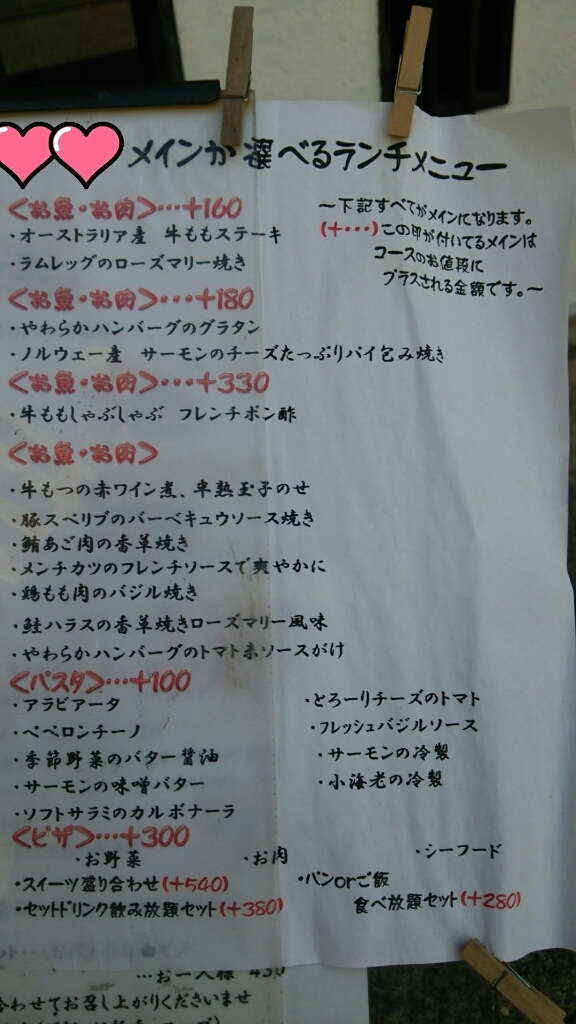 メインが選べるランチメニュー
〜下記すべてがメインになります。
(+・・・)この印が付いてるメインは
コースのお値段に
プラスされる金額です。〜
<お魚・お肉>・・・+160
・オーストラリア産 牛ももステーキ
・ラムレッグのローズマリー焼き
<お魚・お肉>・・・+180
・やわらかハンバーグのグラタン
・ノルウェー産 サーモンのチーズたっぷりパイ包み焼き
<お魚・お肉>・・・+330
・牛ももしゃぶしゃぶ フレンチポン酢
<お魚・お肉>
・牛もつの赤ワイン煮、半熟玉子のせ
・豚スペリブのバーベキュウソース焼き
・鮪あご肉の香草焼き
・メンチカツのフレンチソースで爽やかに
・鶏もも肉のバジル焼き
・鮭ハラスの香草焼きローズマリー風味
・やわらかハンバーグのトマト赤ソースがけ
<パスタ>・・・+100
・アラビアータ
・ペペロンチーノ
・季節野菜のバター醤油
・サーモンの味噌バター
・ソフトサラミのカルボナーラ
・とろーりチーズのトマト
・フレッシュバジルソース
・サーモンの冷製
・小海老の冷製
<ピザ>・・・+300
・お野菜 ・お肉 ・シーフード
・スイーツ盛り合わせ(+540)
・セットドリンク飲み放題セット(+380)
・パンorご飯
食べ放題セット(+280)
・・・お一人様 430
合わせてお召し上がりくださいませ